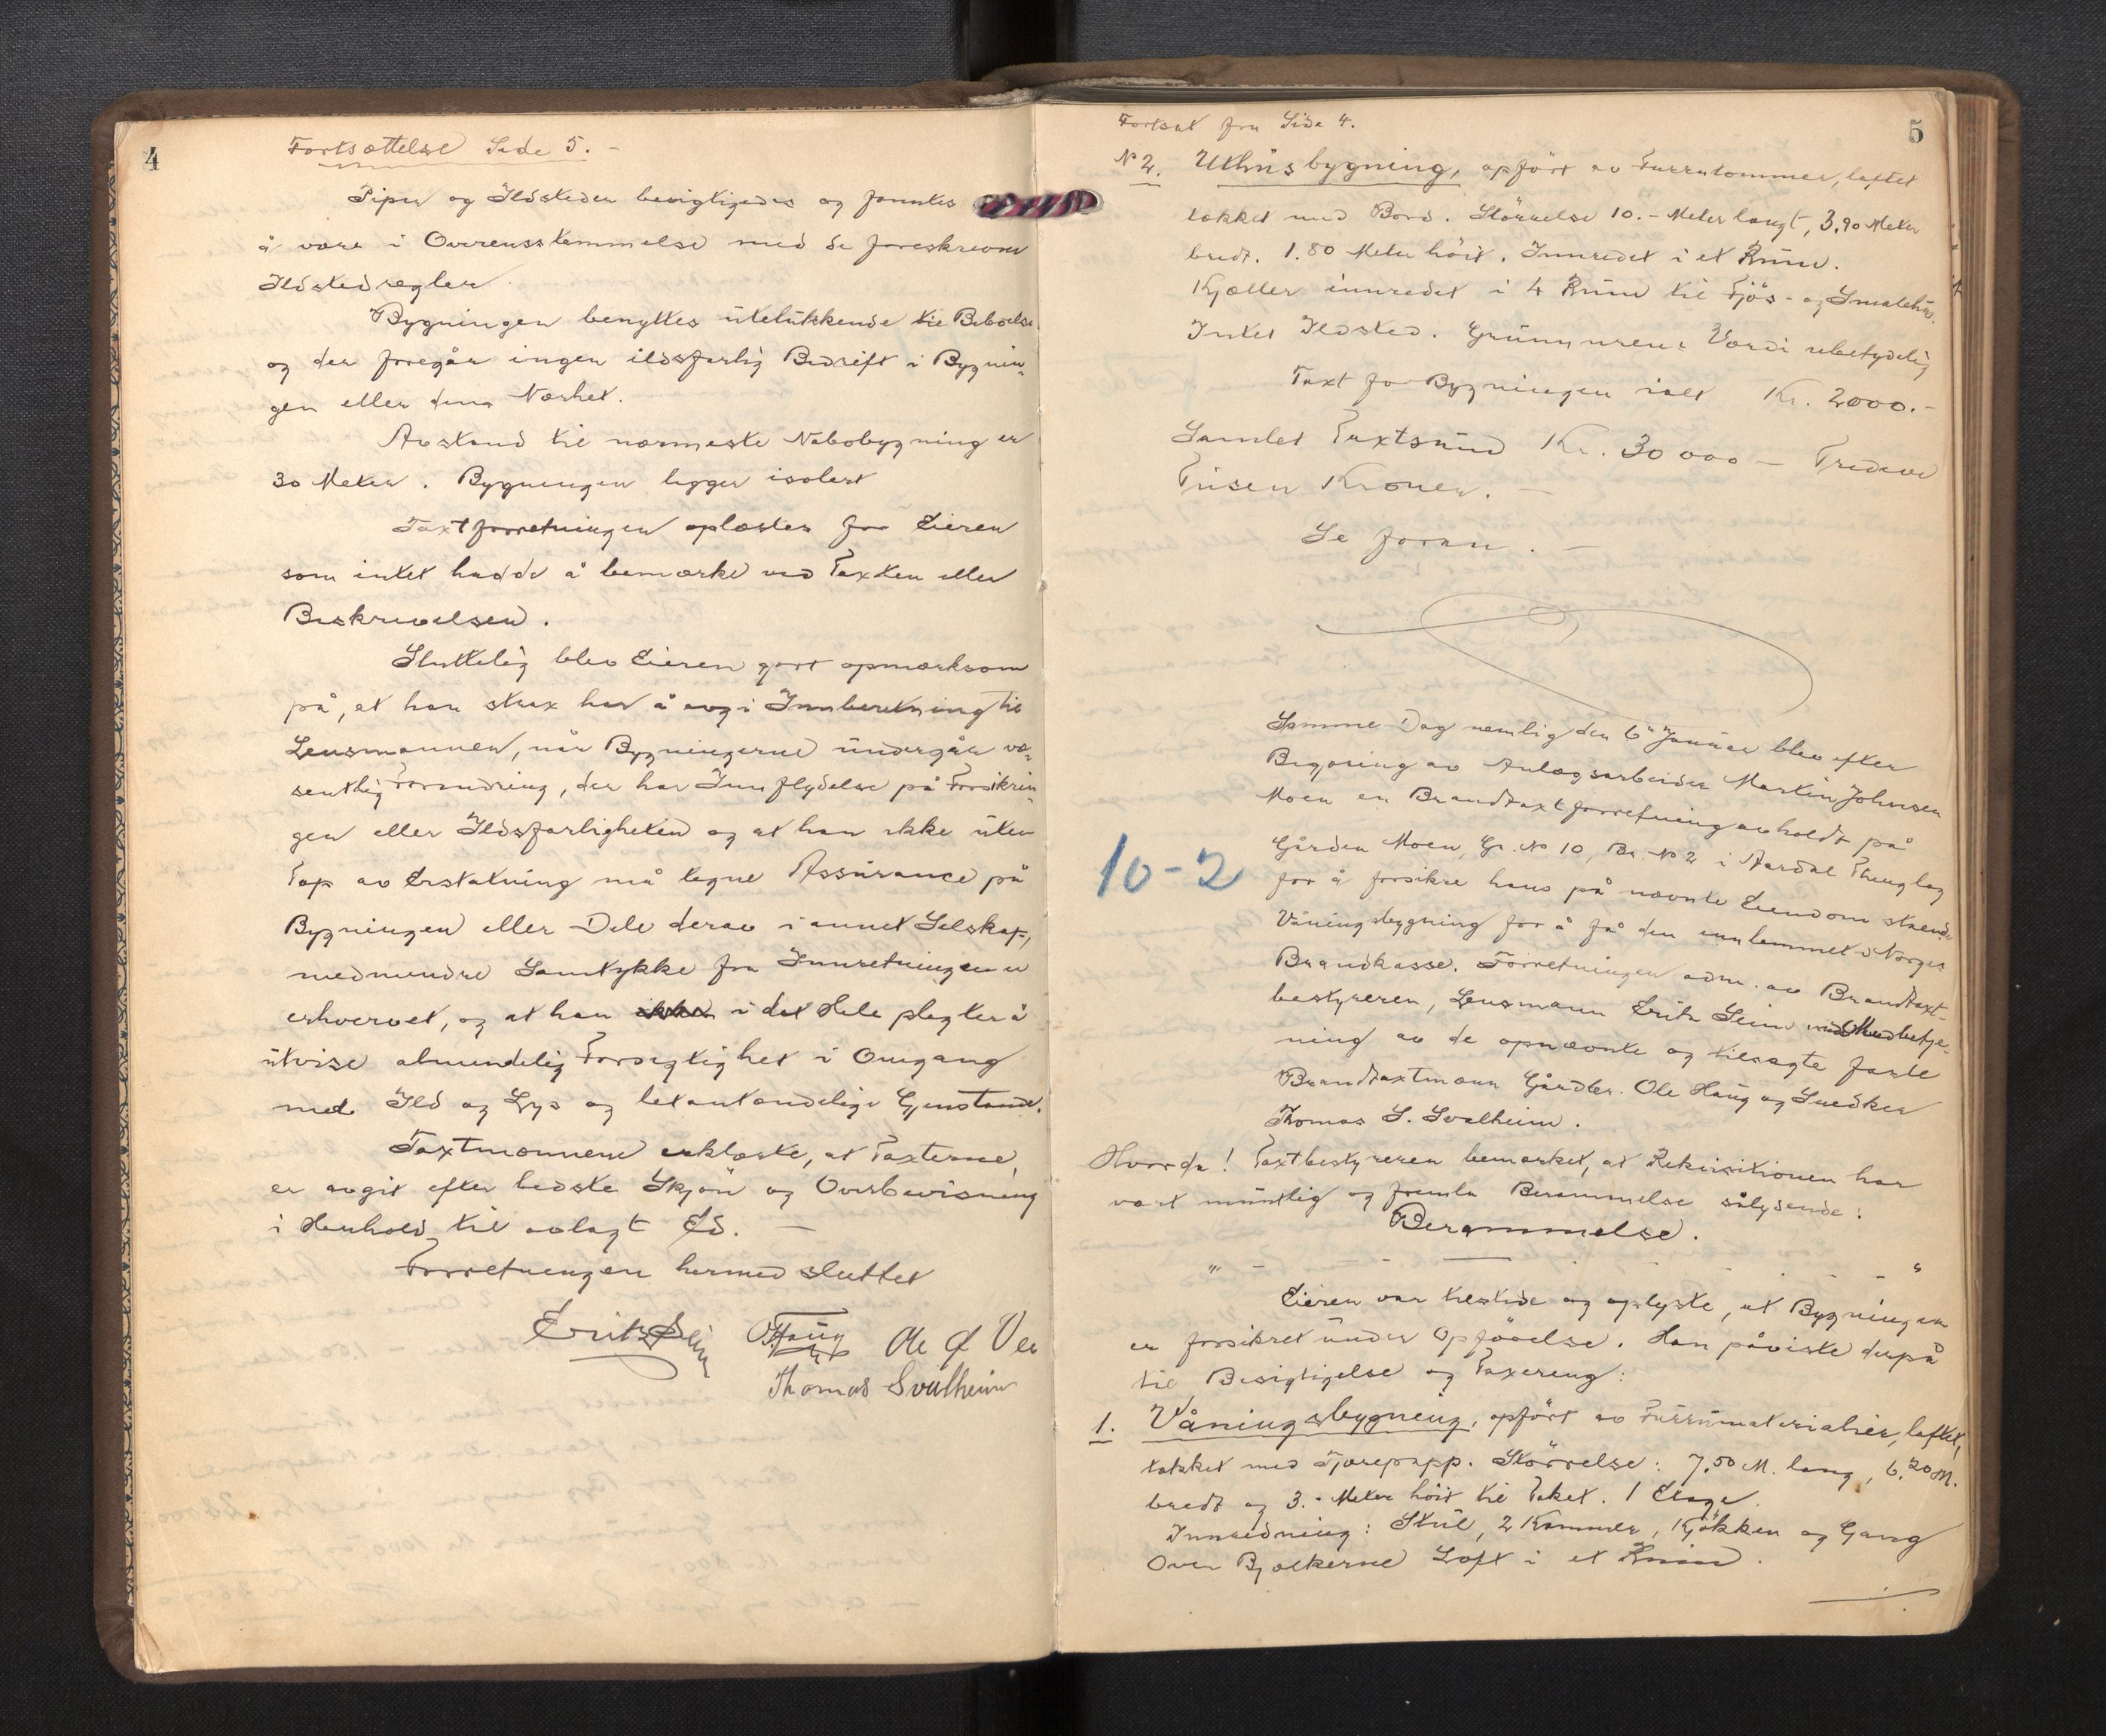 4
Fortsættelse Side 5. -
Piper og Ildsteder besigtigedes og fanntes
å være i Overensstemmelse med de foreskrevne
Ildstedregler.
Bygningen benyttes utelukkende til Beboelse
og der foregår ingen ildsfarlig Bedrift i Bygnin-
gen eller dens Nærhet.
Avstand til nærmeste Nabobygning er
30 Meter. Bygningen ligger isolert
Taxtforretningen oplæstes for Eieren
som intet hadde å bemærke ved Taxten eller
Beskrivelsen.
Sluttelig blev Eieren gjort opmærksom
på, at han strax har å avgi Innberetning til
Lensmannen, når Bygningerne undergår væ-
sentlig Forandring, der har Innflydelse på Forsikrin-
gen eller Ildsfarligheten og at han ikke uten
Tap av Erstatning må tegne Assurance på
Bygningen eller Dele derav i annet Selskap,
medmindre Samtykke fra Innretningen er
erhvervet, og at han i det Hele plegter å
utvise almindelig Forsigtighet i Omgang
med Ild og Lys og letantændelige Gjenstande.
Taxtmænnene erklærte, at Taxterne,
er avgit efter bedste Skjøn og Overbevisning
i Henhold til avlagt Ed. —
Forretningen hermed sluttet
Erik Seim O Haug Ole Ø Vee
Thomas Svalheim
5
Fortsat fra Side 4.
No 2. Uthusbygning, opført av Furrutømmer, laftet
tækket med Bord. Størrelse 10.- Meter langt, 3,90 Meter
bredt. 1.80 Meter høit. Innredet i et Rum.
Kjeller innredet i 4 Rum til Fjøs- og Smalehus.
Intet Ildsted. Grunmurens Værdi ubetydelig
Taxt for Bygningen ialt Kr. 2000.-
Samlet Taxtsum Kr. 30 000 — Tredeve
Tusen Kroner. —
Se foran. —
Samme Dag nemlig den 6te Januar blev efter
Begjæring av Anlægsarbeider Martin Johnsen
Moen en Brandtaxtforretning avholdt på
10-2
Gården Moen, Gr. No 10, Br. No 2 i Aardal Thinglag
for å forsikre hans på nævnte Eiendom stående
Våningsbygning for å få den innlemmet i Norges
Brandkasse. Forretningen adm. av Brandtaxt-
bestyreren, Lensmann Erik Seim med Medbetje-
ning av de opnævnte og tilsagte faste
Brandtaxtmænn Gårdbr. Ole Haug og Snedker
Thomas S. Svalheim.
Hvorda! Taxtbestyreren bemærket, at Rekvisitionen har
vært muntlig og fremla Berammelse sålydende:
Berammelse.
" - - - - - - "
Eieren var tilstede og oplyste, at Bygningen
er forsikret under Opførelse. Han påviste derpå
til Besigtigelse og Taxering:
1. Våningsbygning, opført av Furrumaterialier, laftet,
tækket med Tjærepapp. Størrelse: 7,50 M. lang, 6,20 M.
bredt og 3.- Meter høit til Taket. 1 Etage.
Innredning: Stue, 2 Kammer, Kjøkken og Gang
Over Bjælkerne Loft i et Rum.